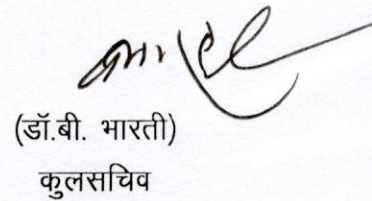 (डॉ.बी. भारती)
कुलसचिव